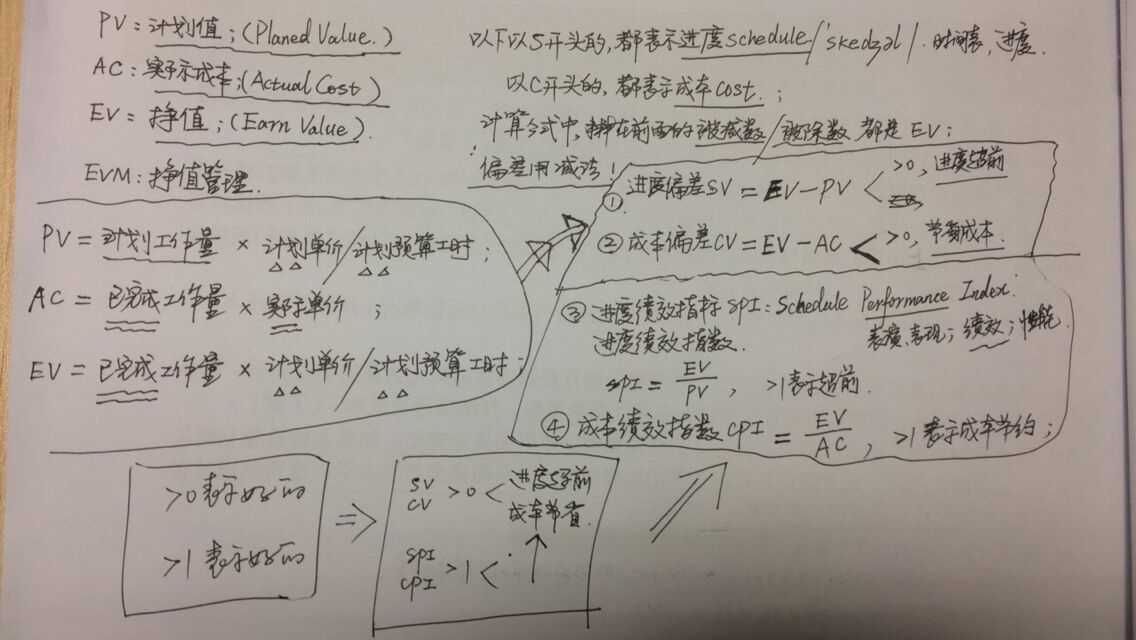 PV：计划值；(Planed Value.)
AC：实际成本；(Actual Cost)
EV：挣值；(Earn Value).
EVM：挣值管理.
以下以S开头的，都表示进度schedule/'skedʒəl/. 时间表，进度.
以C开头的，都表示成本cost.；
计算公式中，排在前面的被减数/被除数 都是EV；
偏差用减法！
① 进度偏差SV = EV-PV < >0，进度超前
② 成本偏差CV = EV-AC < >0，节省成本.
PV = 计划工作量 × 计划单价/计划预算工时；
AC = 已完成工作量 × 实际单价；
EV = 已完成工作量 × 计划单价/计划预算工时；
③ 进度绩效指标 SPI：Schedule Performance Index.
进度绩效指数.
表演、表现；绩效；性能.
SPI = EV/PV，>1表示超前.
④ 成本绩效指数CPI = EV/AC，>1表示成本节约；
>0表示好的
>1表示好的
⇒
SV
CV >0 < 进度超前
成本节省.
SPI
CPI >1 <